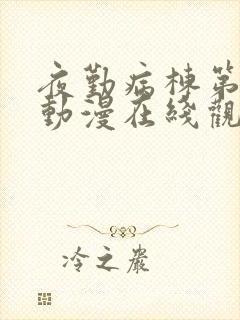 夜勤病棟第
動漫在綫觀
冷之嚴